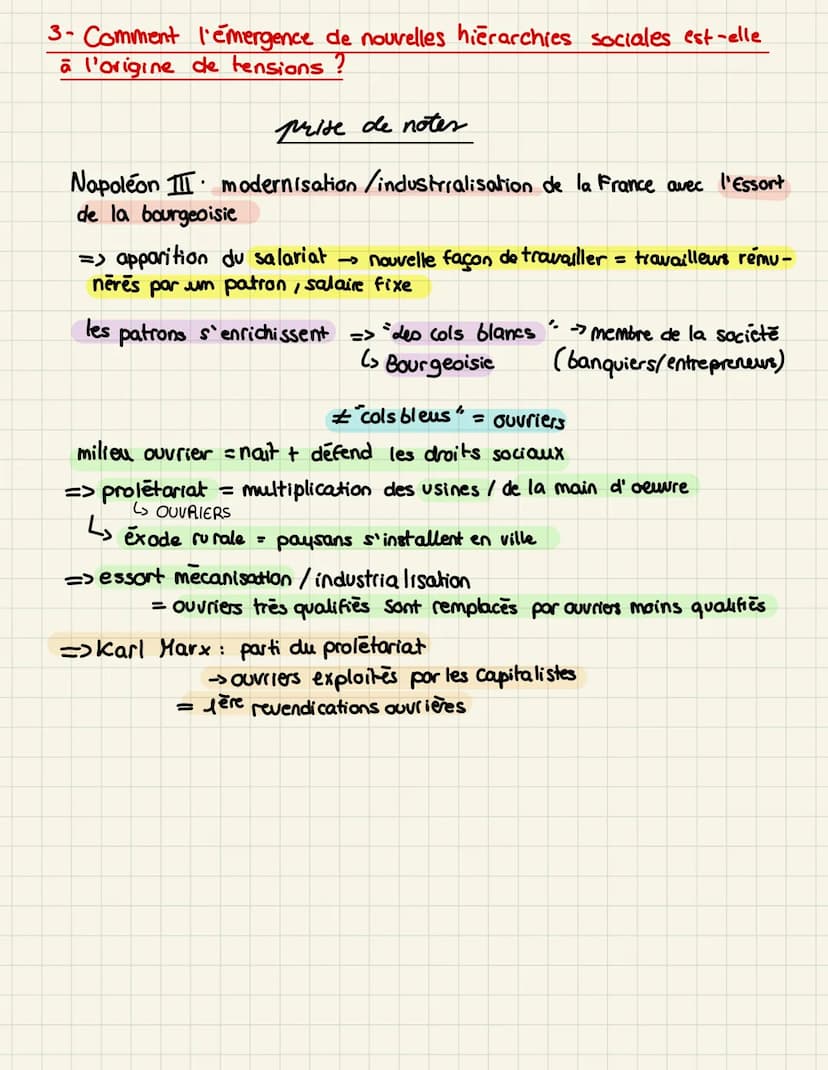 3- Comment l'émergence de nouvelles hiérarchies sociales est-elle
à l'origine de tensions ?
prise de notes
Napoléon III : modernisation / industrialisation de la France avec l'Essort
de la bourgeoisie
=> apparition du salariat → nouvelle façon de travailler = travailleurs rému-
nérés par un patron, salaire fixe
les patrons s'enrichissent => "des cols blancs" → membre de la société
↳ Bourgeoisie (banquiers/entrepreneurs)
≠ "cols bleus" = ouvriers
milieu ouvrier = nait + défend les droits sociaux
=> prolétariat = multiplication des usines / de la main d'oeuvre
↳ OUVRIERS
↳ éxode rurale = paysans s'installent en ville
=> essort mécanisation / industrialisation
= ouvriers très qualifiés sont remplacés par ouvriers moins qualifiés
=> Karl Marx : parti du prolétariat
→ ouvriers exploités par les capitalistes
= 1ère revendications ouvrières